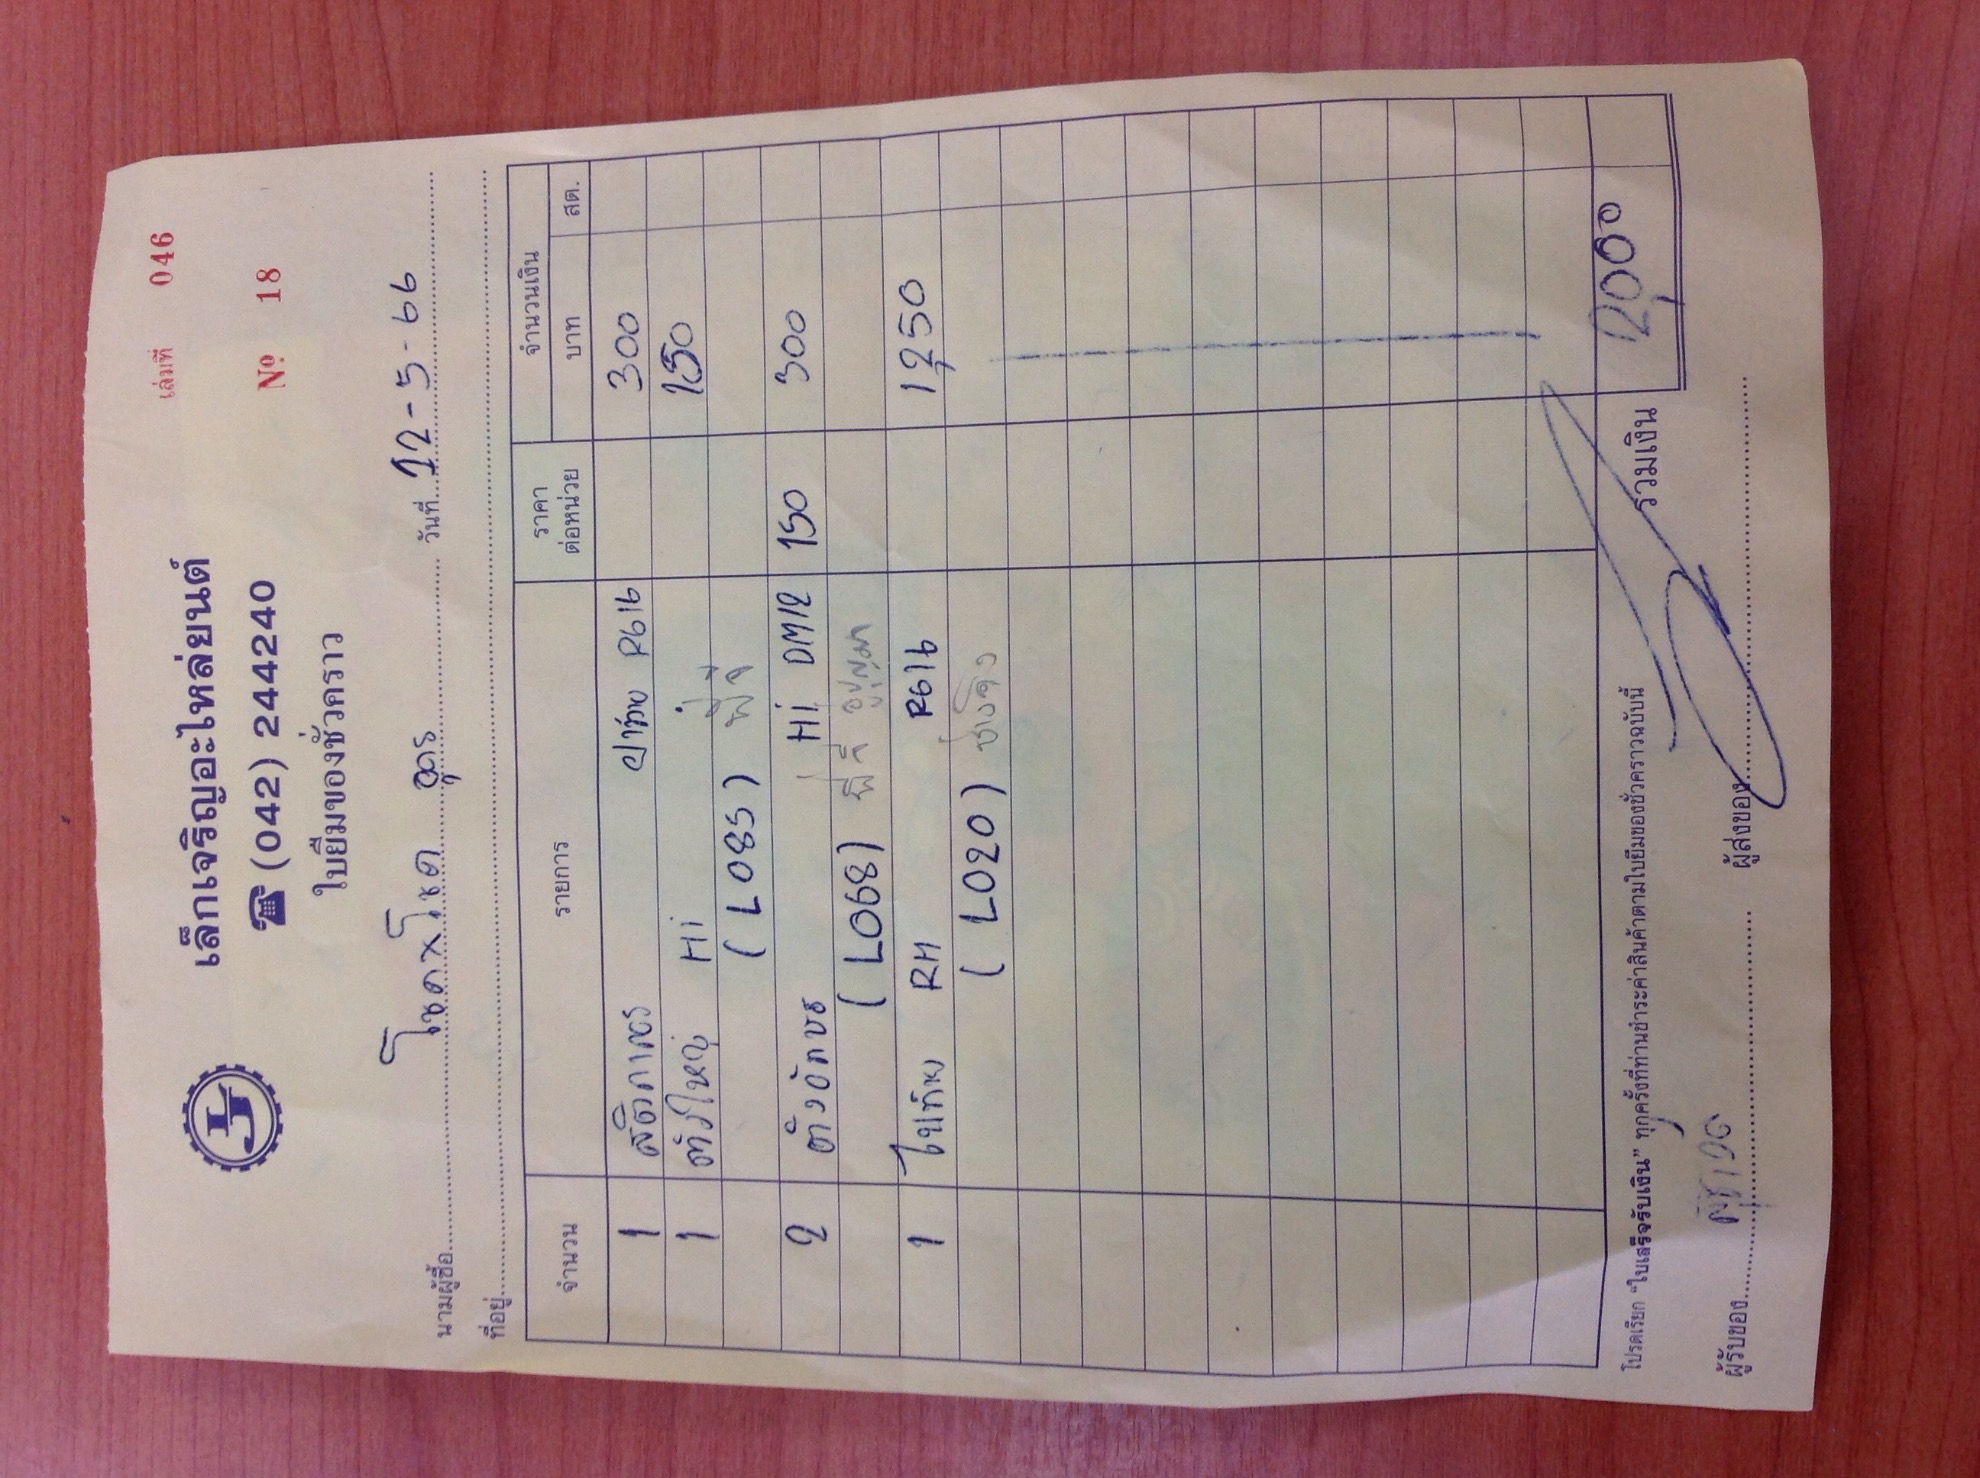 เล่มที่ 046
เล็กเจริญอะไหล่ยนต์
☎ (042) 244240
Nº 18
ใบยืมของชั่วคราว
นามผู้ซื้อ โชคxโชค อุดร วันที่ 12-5-66
ที่อยู่
จำนวน รายการ ราคาต่อหน่วย จำนวนเงิน
บาท สต.
1 R616 300
1 ตัวใหญ่ Hi 150
(L085)
2 Hi DM12 150 300
(L068)
1 RH R616 1250
(L020)
รวมเงิน 2,000
โปรดเรียก "ใบเสร็จรับเงิน" ทุกครั้งที่ท่านชำระค่าสินค้าตามใบยืมของชั่วคราวฉบับนี้
ผู้รับของ ผู้ส่งของ